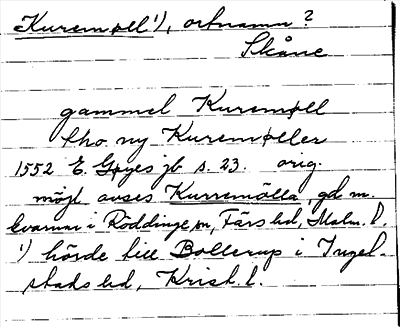 Kuremøll¹), ortnamn?
Skåne
gammel Kuremøll
Cho. ny Kuremøller
1552 E. Gøyes jb s. 23. orig.
möjl. avses Kurremölla, gd m.
kvarnar i Röddinge sn, Färs hd, Malm. l.
¹) hörde till Bollerup i Ingel-
stads hd, Krist. l.